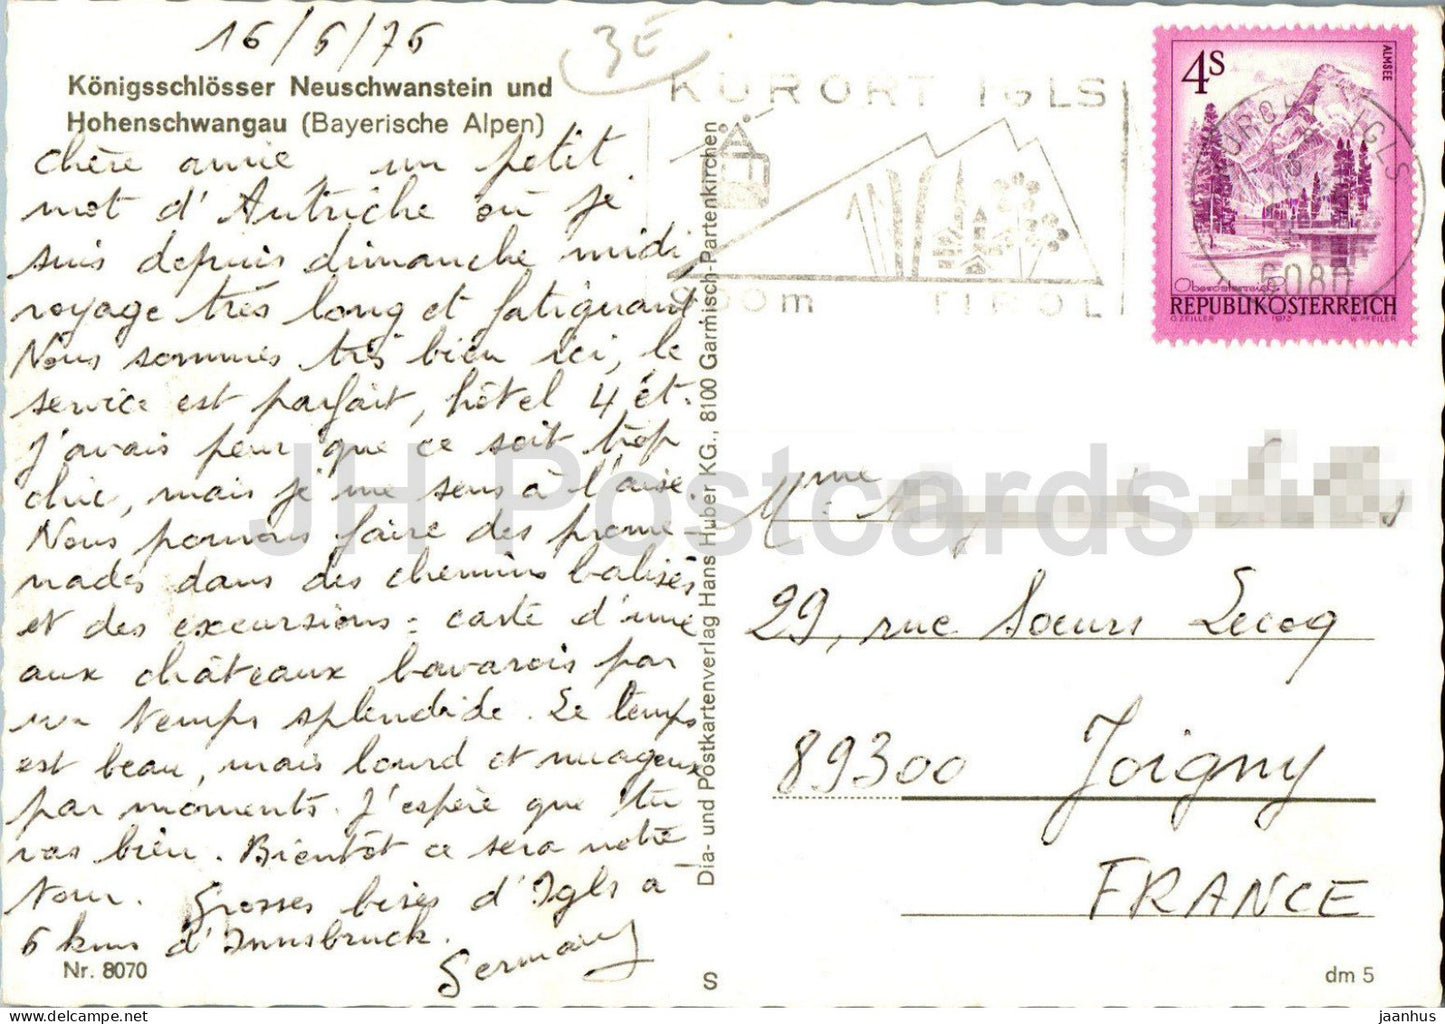 16/6/76
3E
Königsschlösser Neuschwanstein und
Hohenschwangau (Bayerische Alpen)
chère amie, un petit
mot d'Autriche où je
suis depuis dimanche midi,
voyage très long et fatiguant
Nous sommes très bien ici, le
service est parfait, hôtel 4 ét.
J'avais peur que ce soit trop
chic, mais je me sens à l'aise.
Nous pouvons faire des prome-
nades dans des chemins balisés
et des excursions = carte d'une
aux châteaux bavarois par
un temps splendide. Le temps
est beau, mais lourd et nuageux
par moments. J'espère que tu
vas bien. Bientôt ce sera notre
tour. Grosses bises d'Igls à
6 kms d'Innsbruck.
Germany
Nr. 8070
Dia- und Postkartenverlag Hans Huber KG., 8100 Garmisch-Partenkirchen
S
KURORT IGLS
900m TIROL
4S
ALMSEE
IGLS
6080
Oberösterreich
REPUBLIK ÖSTERREICH
O.ZEILLER 1973 W.PFEILER
Mme
29, rue Sœurs Lecoq
89300 Joigny
FRANCE
dm 5
JH Postcards
jaanhus — https://www.jaanhus.com